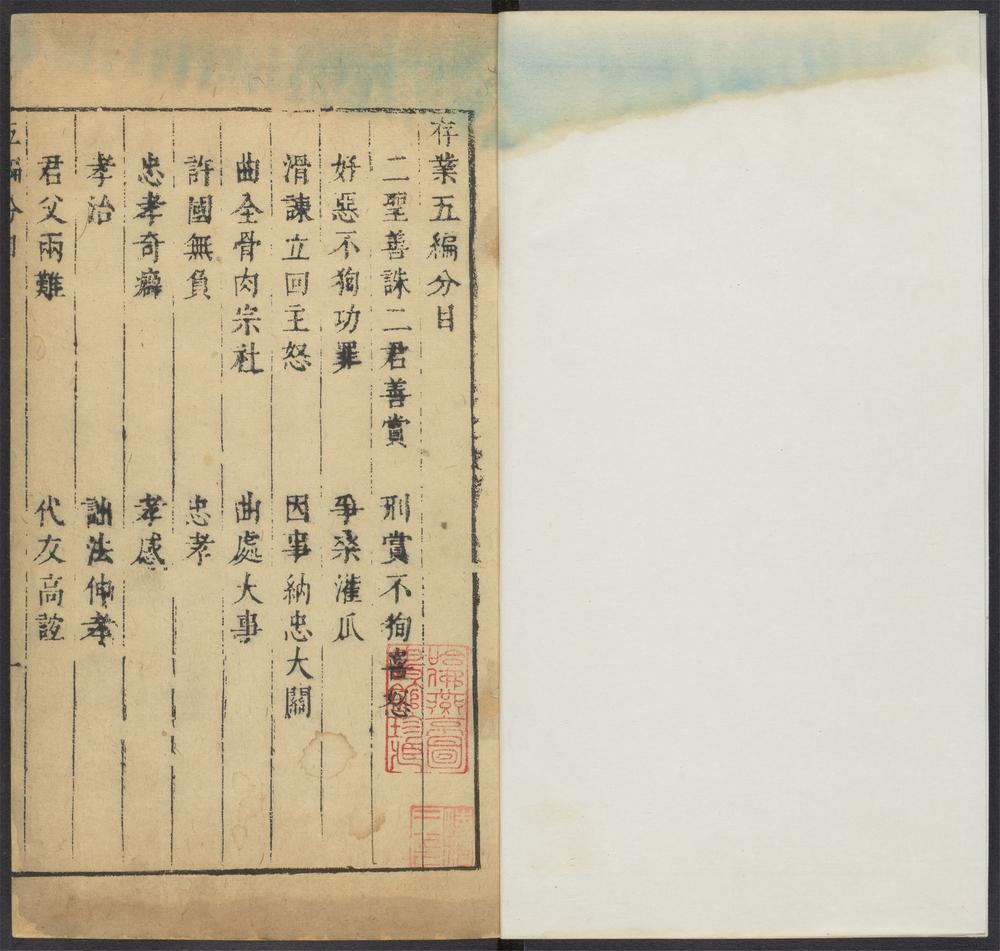 存業五編分目
二聖善誅二君善賞 刑賞不狥喜怒
好惡不狥功罪 爭桑灌瓜
滑諫立回主怒 因事納忠大關
曲全骨肉宗社 曲處大事
許國無負 忠孝
忠孝奇癖 孝感
孝治 詘法伸孝
君父兩難 代友高誼
五編分目 一
哈佛燕京圖書館珍藏